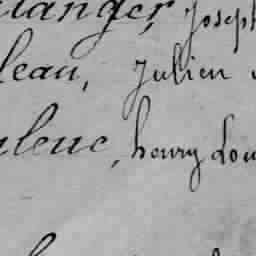 langer, Joseph
leau, Julien
leuc, henry Lou